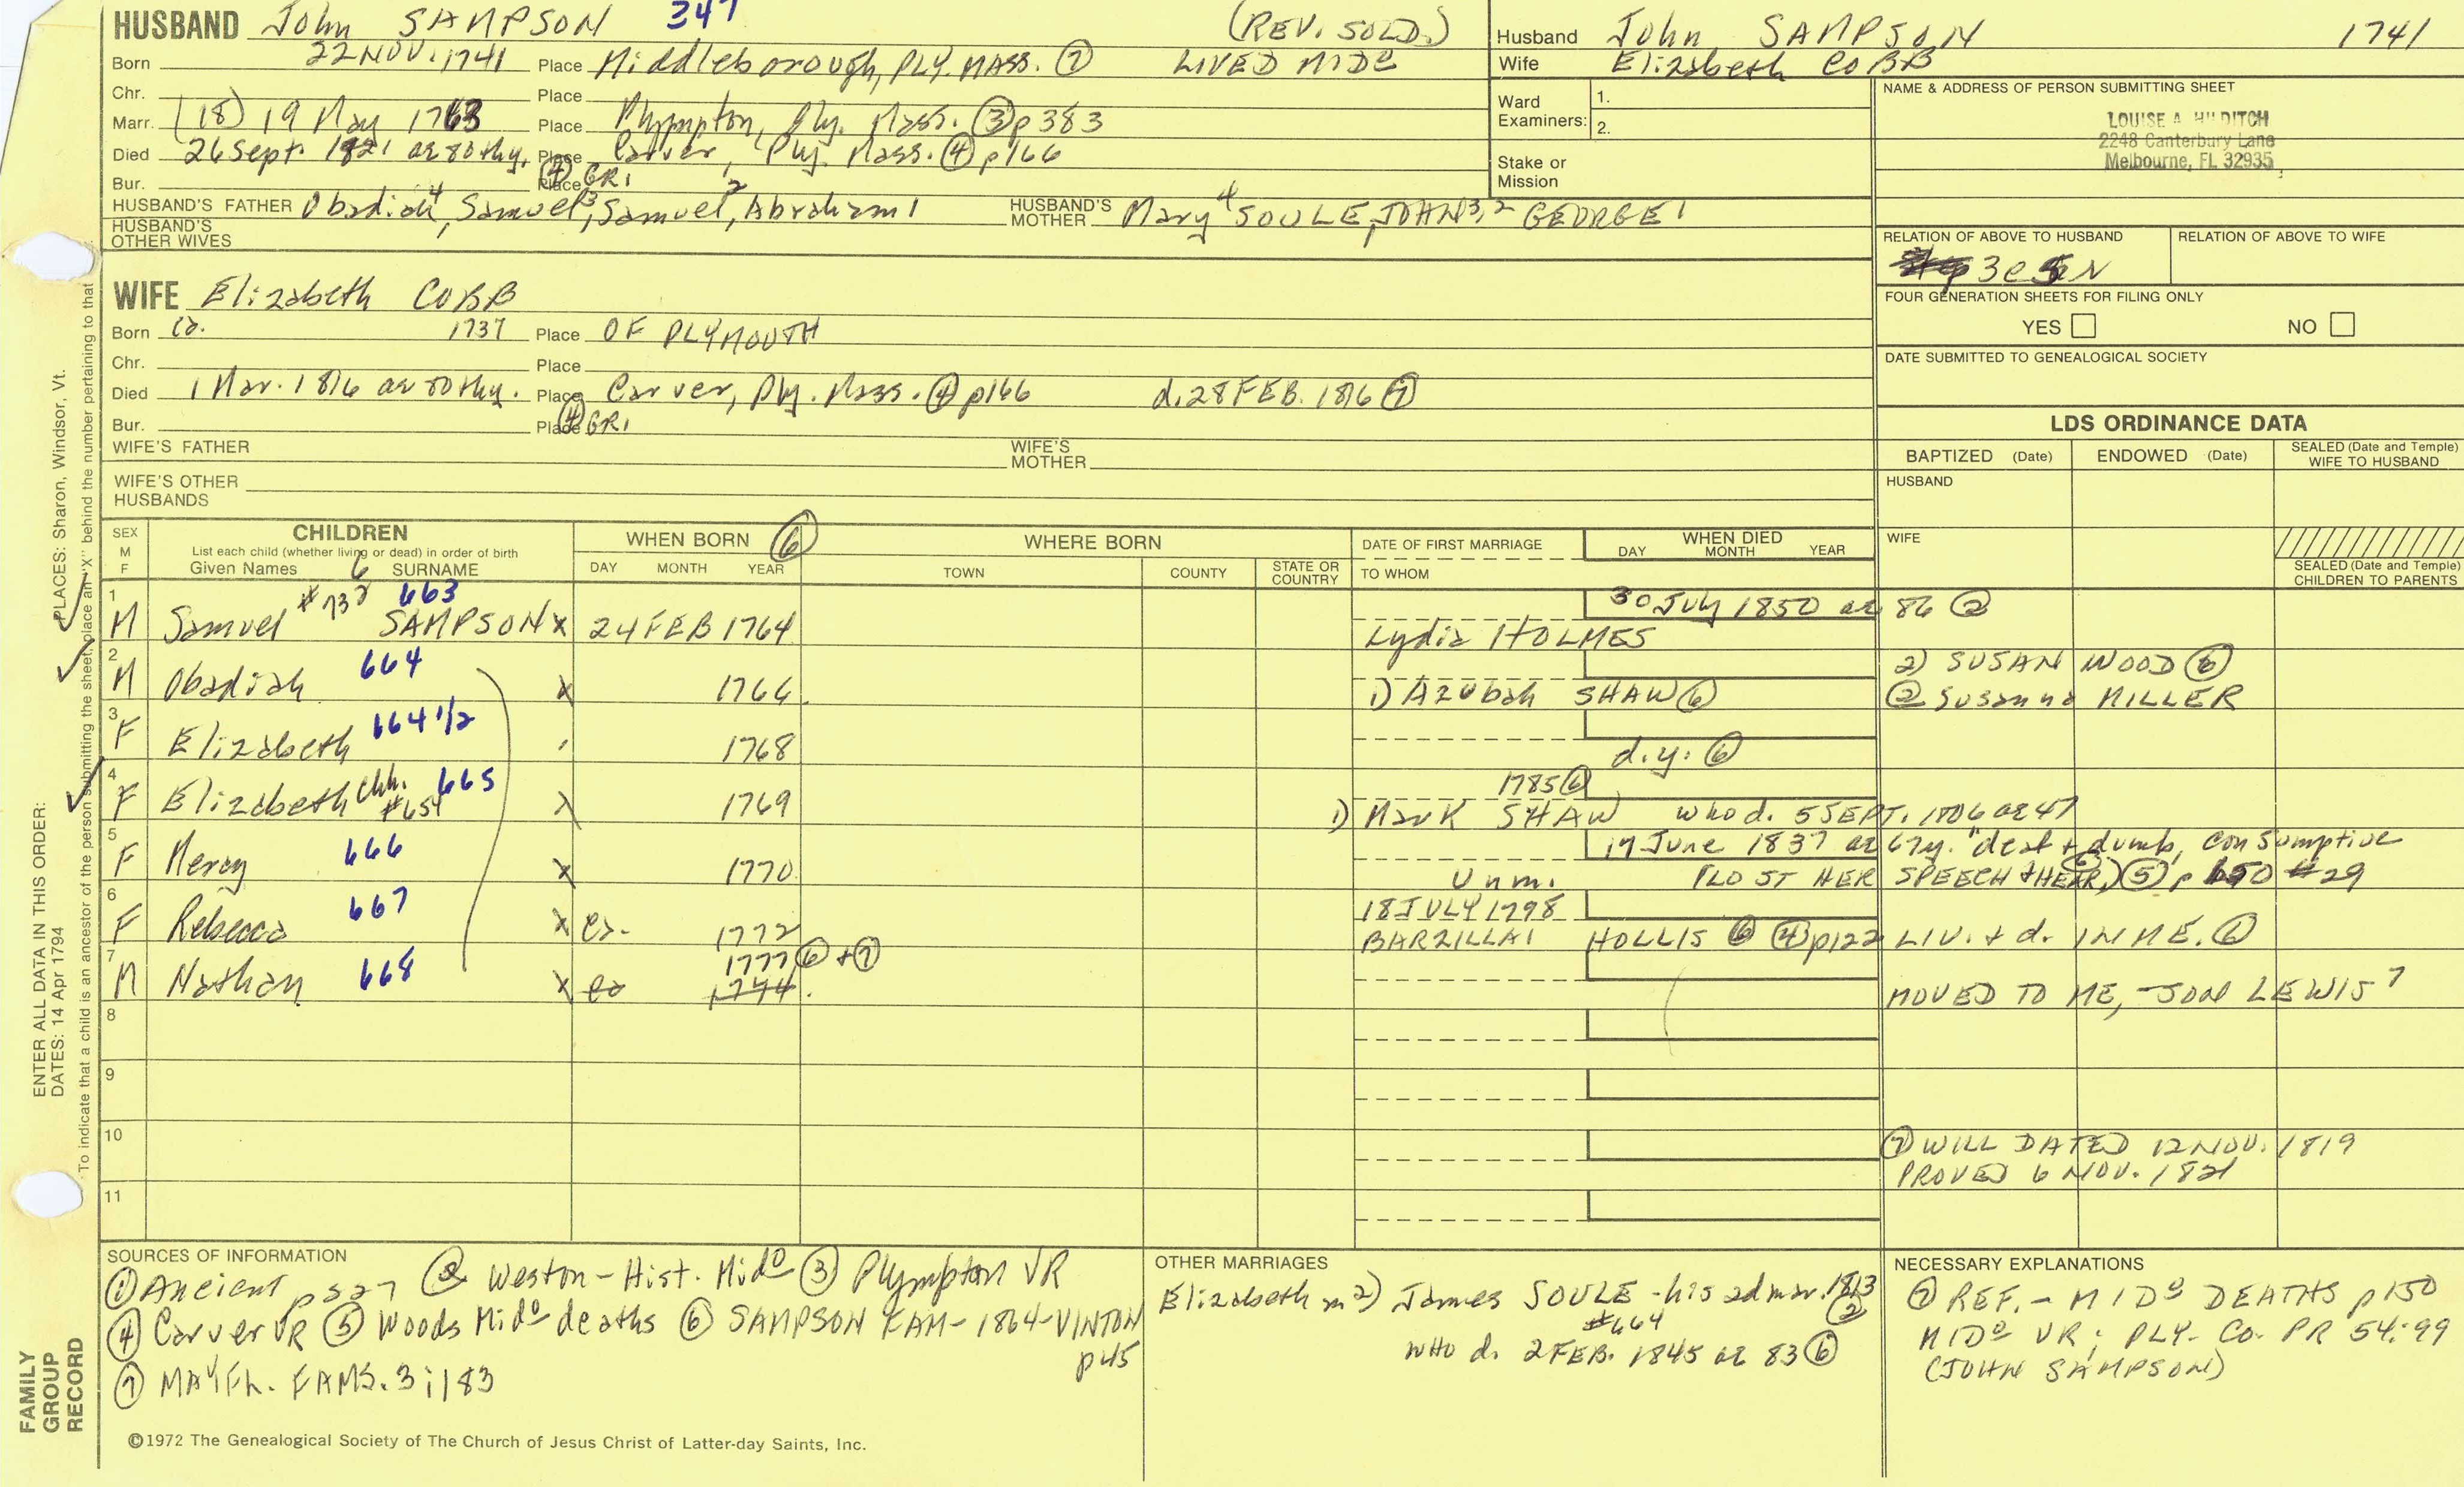 HUSBAND John SAMPSON 347 (REV. SOLD.)
Born 22 NOV. 1741 Place Middleborough, PLY. MASS. ⑦ LIVED MIDo
Chr. Place
Marr. (18) 19 May 1763 Place Plympton, Ply. Mass. ③ p383
Died 26 Sept. 1821 ae 80thy. Place Carver, Ply. Mass. ④ p166
Bur. Place ④ GR1
HUSBAND'S FATHER Obadiah4, Samuel3, Samuel2, Abraham1 HUSBAND'S MOTHER Mary4 SOULE, JOHN3,2 GEORGE1
HUSBAND'S OTHER WIVES
Husband John SAMPSON 1741
Wife Elizabeth COBB
Ward Examiners: 1.
2.
Stake or Mission
NAME & ADDRESS OF PERSON SUBMITTING SHEET
LOUISE A. HILDITCH
2248 Canterbury Lane
Melbourne, FL 32935
RELATION OF ABOVE TO HUSBAND RELATION OF ABOVE TO WIFE
FOUR GENERATION SHEETS FOR FILING ONLY
YES NO
DATE SUBMITTED TO GENEALOGICAL SOCIETY
WIFE Elizabeth COBB
Born ca. 1737 Place OF PLYMOUTH
Chr. Place
Died 1 Mar. 1816 ae 80thy. Place Carver, Ply. Mass. ④ p166 d. 28 FEB. 1816 ⑦
Bur. Place ④ GR1
WIFE'S FATHER WIFE'S MOTHER
WIFE'S OTHER HUSBANDS
LDS ORDINANCE DATA
BAPTIZED (Date) ENDOWED (Date) SEALED (Date and Temple) WIFE TO HUSBAND
HUSBAND
WIFE
SEALED (Date and Temple) CHILDREN TO PARENTS
SEX M F CHILDREN
List each child (whether living or dead) in order of birth
Given Names 6 SURNAME
WHEN BORN ⑥
DAY MONTH YEAR
WHERE BORN
TOWN COUNTY STATE OR COUNTRY
DATE OF FIRST MARRIAGE
TO WHOM
WHEN DIED
DAY MONTH YEAR
1 M Samuel #732 663 SAMPSON x 24 FEB 1764 Lydia HOLMES 30 July 1850 ae 86 ②
2 M Obadiah 664 x 1766 1) Azubah SHAW ⑥ 2) SUSAN WOOD ⑥
② Susanna MILLER
3 F Elizabeth 664 1/2 1768 d.y. ⑥
4 F Elizabeth chh. #654 665 x 1769 1785 ⑥ 1) Mark SHAW who d. 5 SEPT. 1806 ae 47
5 F Mercy 666 x 1770 Unm. 17 June 1837 ae 67y. "deaf + dumb, consumptive
(LOST HER SPEECH + HEAR.) ⑥ ⑤ p 150 #29
6 F Rebecca 667 x ca. 1772 18 JULY 1798 BARZILLAI HOLLIS ⑥ ④ p122 LIV. + d. IN ME. ⑥
7 M Nathan 668 x ca 1774 1777 ⑥ + ⑦ MOVED TO ME, -SON LEWIS 7
8
9
10
11
⑦ WILL DATED 12 NOV. 1819
PROVED 6 NOV. 1821
SOURCES OF INFORMATION
① Ancient p 327 ② Weston - Hist. Mido ③ Plympton VR
④ Carver VR ⑤ Woods Mido deaths ⑥ SAMPSON FAM - 1864 - VINTON
p45
⑦ MAYFL. FAMS. 3:183
OTHER MARRIAGES
Elizabeth m 2) James SOULE - his ad mar. 1813 ②
#664
WHO d. 2 FEB. 1845 ae 83 ⑥
NECESSARY EXPLANATIONS
⑦ REF. - MIDo DEATHS p150
MIDo VR; PLY. Co. PR 54:99
(JOHN SAMPSON)
©1972 The Genealogical Society of The Church of Jesus Christ of Latter-day Saints, Inc.
FAMILY GROUP RECORD
ENTER ALL DATA IN THIS ORDER:
DATES: 14 Apr 1794
PLACES: Sharon, Windsor, Vt.
To indicate that a child is an ancestor of the person submitting the sheet, place an "X" behind the number pertaining to that